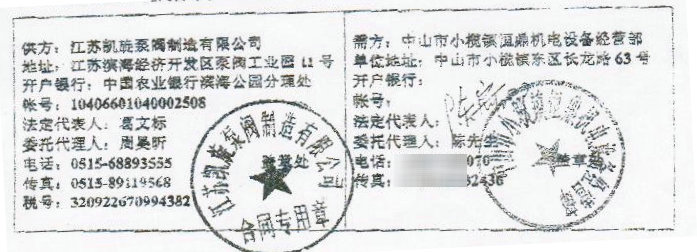 供方：江苏凯旋泵阀制造有限公司
地址：江苏滨海经济开发区泵阀工业园 11 号
开户银行：中国农业银行滨海公园分理处
帐号：10406601040002508
法定代表人：葛文标
委托代理人：周昊昕
电话：0515-68893555
传真：0515-89119568
税号：320922670994382
盖章处
江苏凯旋泵阀制造有限公司
合同专用章
需方：中山市小榄镇恒鼎机电设备经营部
单位地址：中山市小榄镇东区长龙路 63 号
开户银行：
帐号：
法定代表人：
委托代理人：陈先生
电话：070
传真：32436
盖章处